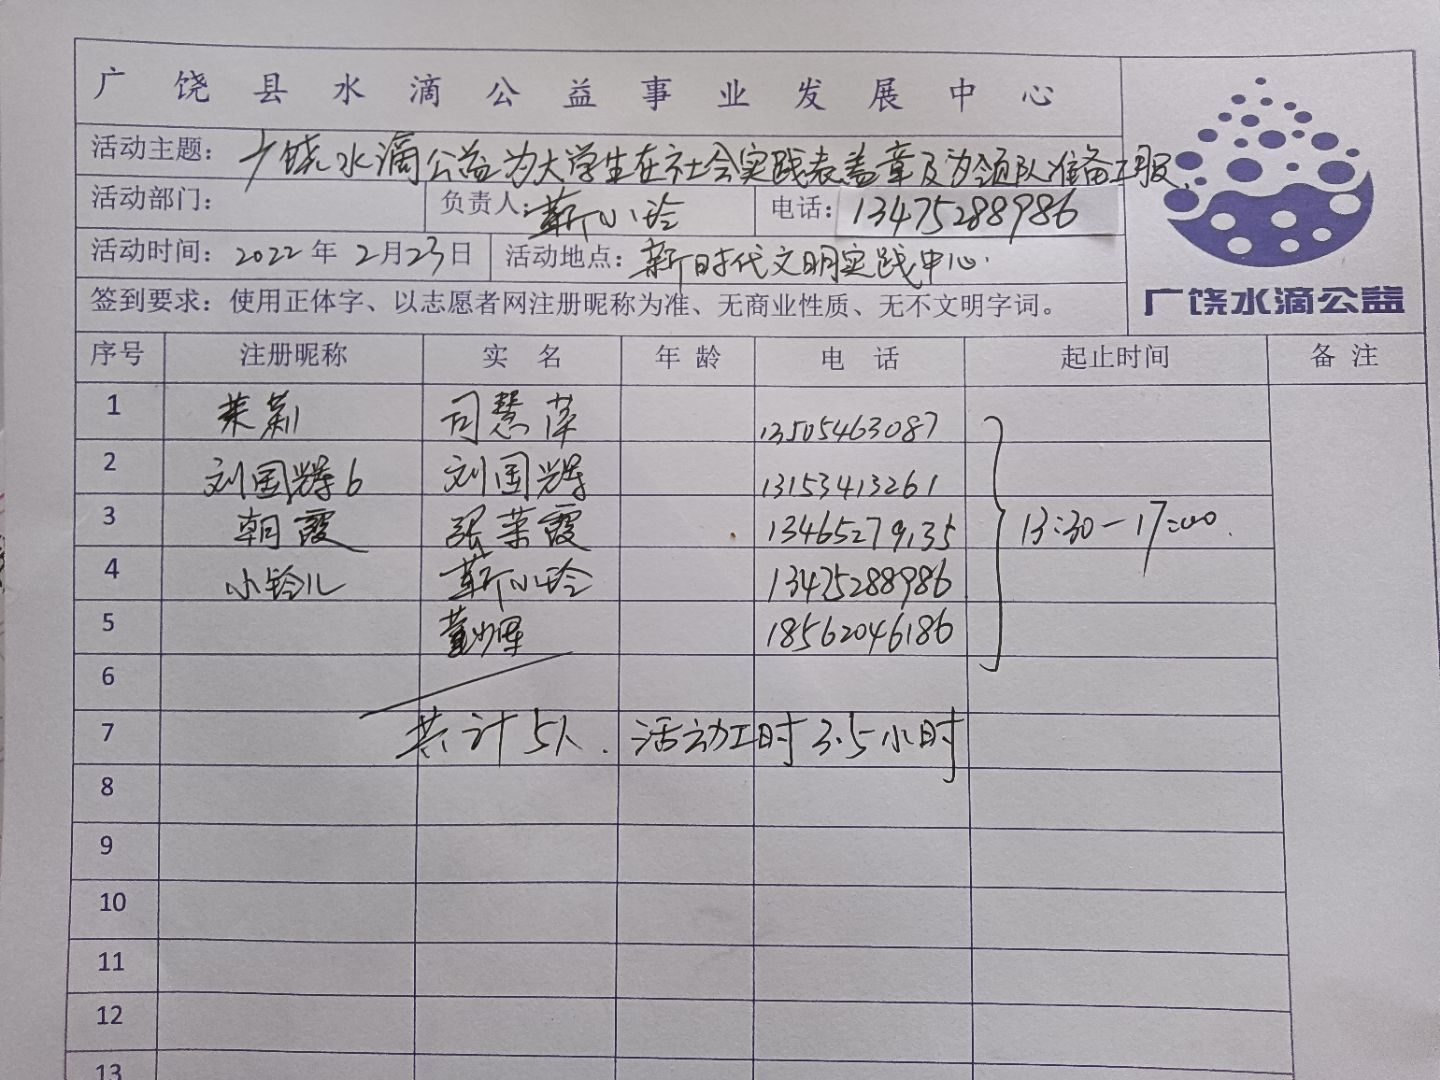 广饶县水滴公益事业发展中心
活动主题：广饶水滴公益为大学生在社会实践表盖章及为领队准备工服.
活动部门： 负责人：靳小玲 电话：13475288986
活动时间：2022年2月23日 活动地点：新时代文明实践中心.
签到要求：使用正体字、以志愿者网注册昵称为准、无商业性质、无不文明字词。
广饶水滴公益
序号 注册昵称 实名 年龄 电话 起止时间 备注
1 茉莉 司慧萍 13505463087
2 刘国辉6 刘国辉 13153413261
3 朝霞 张荣霞 13465279135 13:30-17:00.
4 小铃儿 靳小玲 13475288986
5 董 18562046186
6
7 共计5人. 活动工时3.5小时
8
9
10
11
12
13